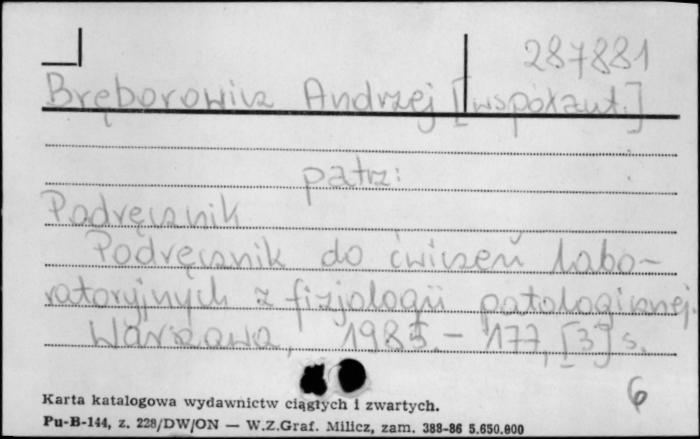 287881
Bręborowicz Andrzej [współaut.]
patrz:
Podręcznik
Podręcznik do ćwiczeń labo-
ratoryjnych z fizjologii patologicznej.
Warszawa, 1985. - 177, [3] s.
6
Karta katalogowa wydawnictw ciągłych i zwartych.
Pu-B-144, z. 228/DW/ON — W.Z.Graf. Milicz, zam. 388-86 5.650.000